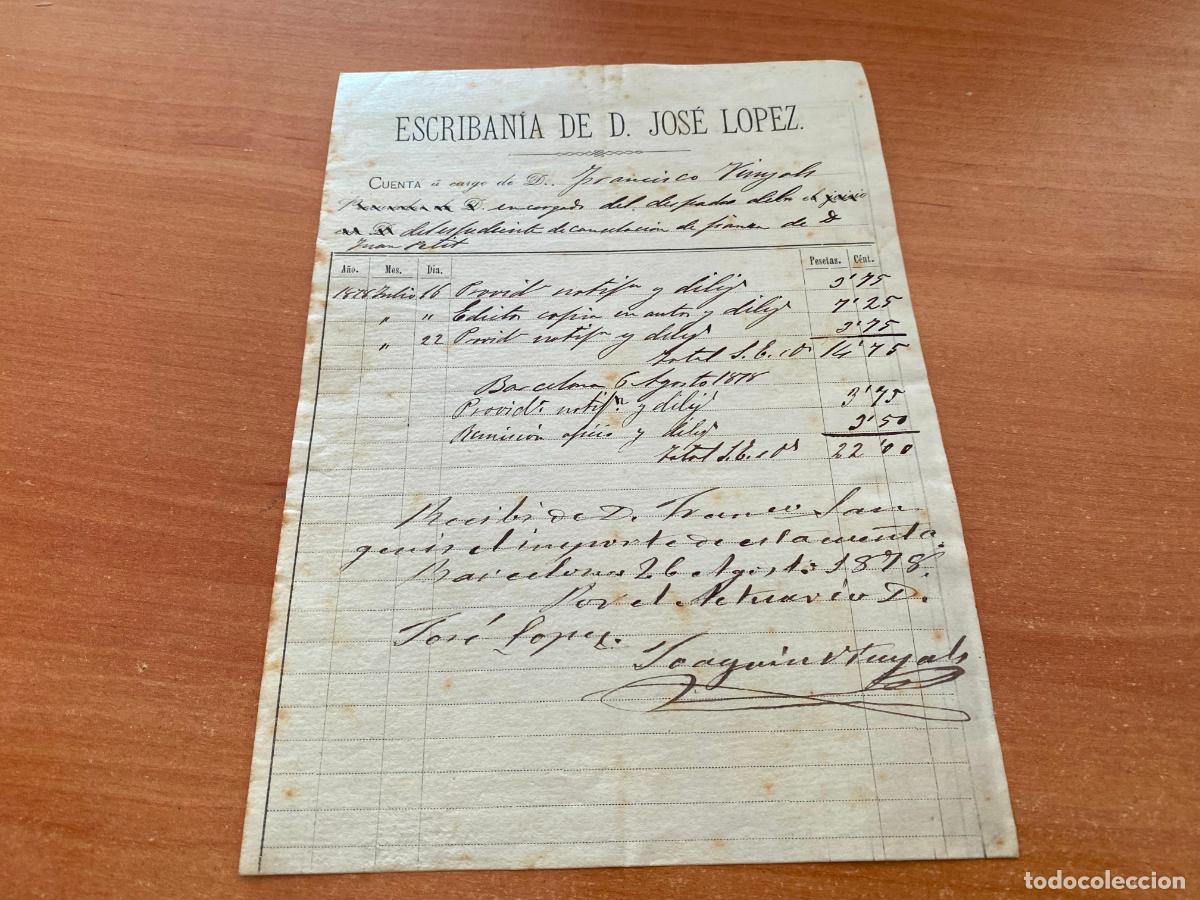 ESCRIBANÍA DE D. JOSÉ LOPEZ.
CUENTA á cargo de D. Francisco Vinyals
D. encargado del despacho de los
del espediente de cancelacion de fianza de D
Juan Petit
Año. Mes. Dia. Pesetas. Cént.
1878 Julio 16 Provid notifn y dilijs 3'75
" " Edictos copia en autos y dilijs 7'25
" 22 Provid notifn y dilijs 3'75
Total S. E. ú Os 14'75
Barcelona 6 Agosto 1878
Provida. notifn. y dilijs 3'75
Remision oficio y dilijs 3'50
Total S. E. ú Os 22'00
Recibi de D. Franco. San
genis el importe de esta cuenta.
Barcelona 26 Agosto 1878
Por el Actuario D.
José Lopez.
Joaquin Vinyals
todocoleccion